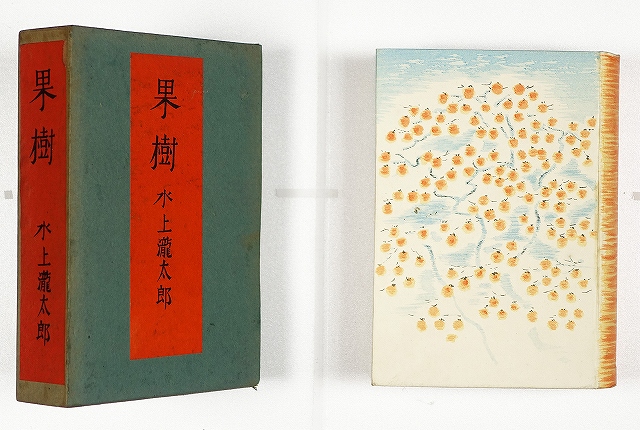 果樹
水上瀧太郎
果樹
水上瀧太郎